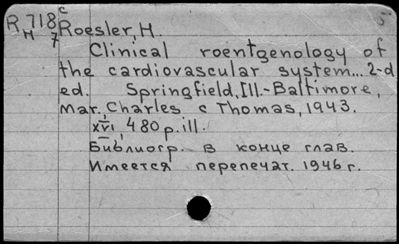 R 718 c Roesler, H. 5
H 7
Clinical roentgenology of
the cardiovascular system... 2-d
ed. Springfield, Ill.-Baltimore,
Mar., Charles c Thomas, 1943.
XVI, 480 p. ill.
Библиогр. в конце глав.
Имеется перепечат. 1946 г.